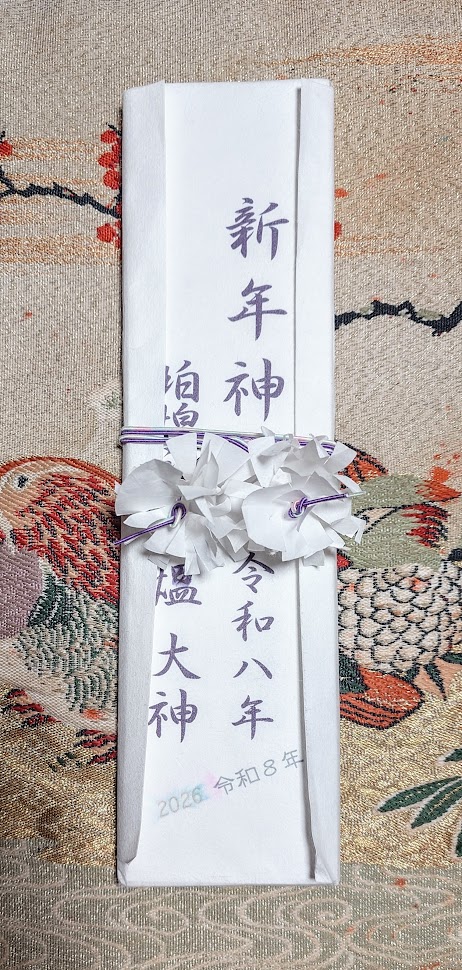 新年神
令和八年
大神
2026 令和8年